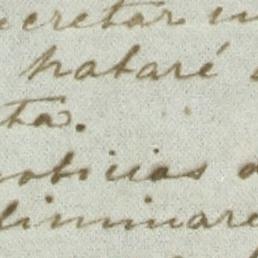 ecretar u
trataré
ta.
noticias a
liminare